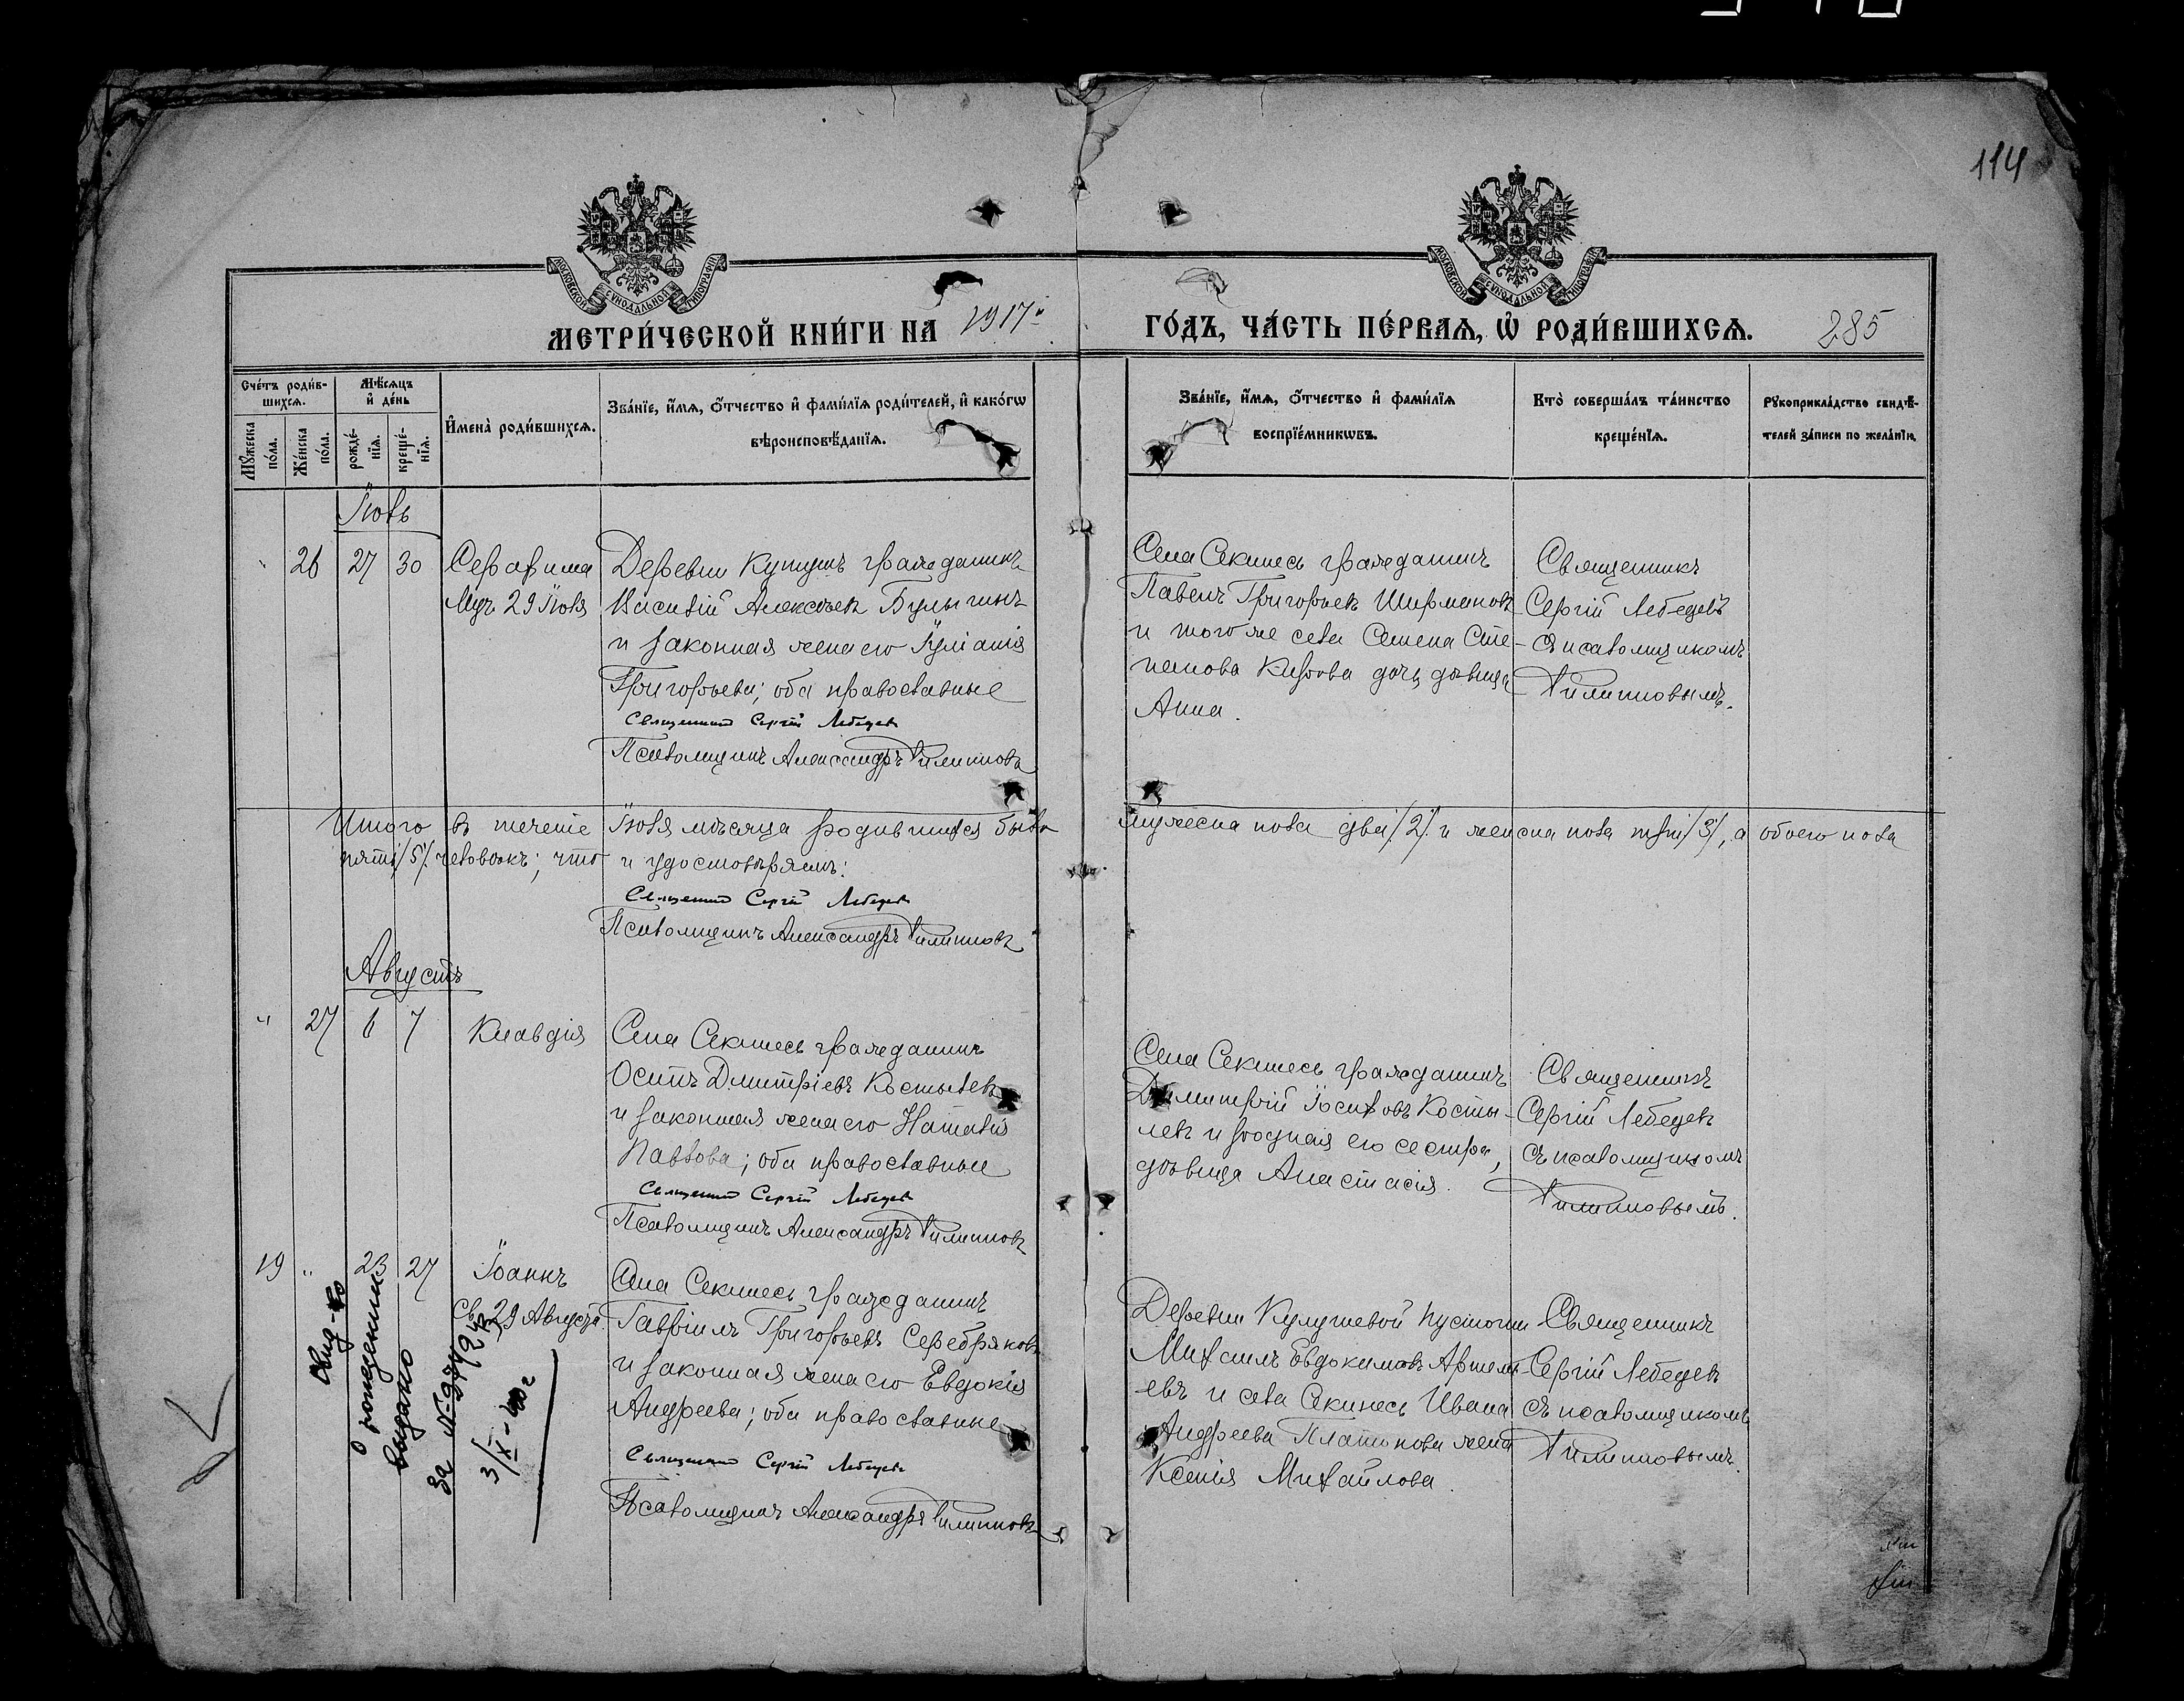 114
МОСКОВСКОЙ СУНОДАЛЬНОЙ ТИПОГРАФІИ
МОСКОВСКОЙ СУНОДАЛЬНОЙ ТИПОГРАФІИ
МЕТРИ́ЧЕСКОЙ КНИ́ГИ НА 1917й ГО́ДЪ, ЧА́СТЬ ПЕ́РВАЯ, Ѡ РОДИ́ВШИХСЯ. 285
Сче́тъ роди́в-
шихся.
Мꙋ́жеска по́ла.
Же́нска по́ла.
Мѣ́сяцъ
и҆ де́нь
рожде́-
нїя.
креще́-
нїя.
И҆мена̀ роди́вшихся.
Зва́нїе, и҆́мя, ѻ҆́тчество и҆ фами́лїя роди́телей, и҆ како́гѡ
вѣроисповѣ́данїя.
Зва́нїе, и҆́мя, ѻ҆́тчество и҆ фами́лїя
воспрїе́мникѡвъ.
Кто̀ соверша́лъ та́инство
креще́нїя.
Рꙋкоприкла́дство свидѣ́-
телей за́писи по жела́нїю.
Іюль
" 26 27 30 Серафима
Муч. 29 Іюля
Деревни Кутушъ гражданинъ
Василій Алексѣевъ Булыгинъ
и законная жена его Іуліанія
Григорьева; оба православные
Священник Сергій Лебедев
Псаломщикъ Александръ Филипповъ
Села Секинесь гражданинъ
Павелъ Григорьевъ Ширмановъ
и того же села Семена Сте-
панова Кирѣева дочь дѣвица
Анна.
Священникъ
Сергій Лебедевъ
съ псаломщикомъ
Филипповымъ.
Итого въ теченіе Іюля мѣсяца родившихся было мужеска пола два /2/ и женска пола три /3/, а обоего пола
пять /5/ человѣкъ; что и удостовѣряемъ:
Священник Сергій Лебедев
Псаломщикъ Александръ Филипповъ
Августъ
" 27 6 7 Клавдія
Села Секинесь гражданинъ
Осипъ Дмитріевъ Костылевъ
и законная жена его Наталія
Павлова; оба православные
Священник Сергій Лебедев
Псаломщикъ Александръ Филипповъ
Села Секинесь гражданинъ
Димитрій Іосифовъ Косты-
левъ и родная его сестра,
дѣвица Анастасія.
Священникъ
Сергій Лебедевъ
съ псаломщикомъ
Филипповымъ.
19 " 23 27 Іоаннъ
Св. 29 Августа.
Села Секинесь гражданинъ
Гавріилъ Григорьевъ Серебряковъ
и законная жена его Евдокія
Андреева; оба православные
Священник Сергій Лебедев
Псаломщикъ Александръ Филипповъ
Деревни Кулушевой Пустоши
Михаилъ Евдокимовъ Артем-
евъ и села Секинесь Ивана
Андреева Платонова жена
Ксенія Михайлова.
Священникъ
Сергій Лебедевъ
съ псаломщикомъ
Филипповымъ.
Свид-во
о рождении
выдано
За №
3/IX-